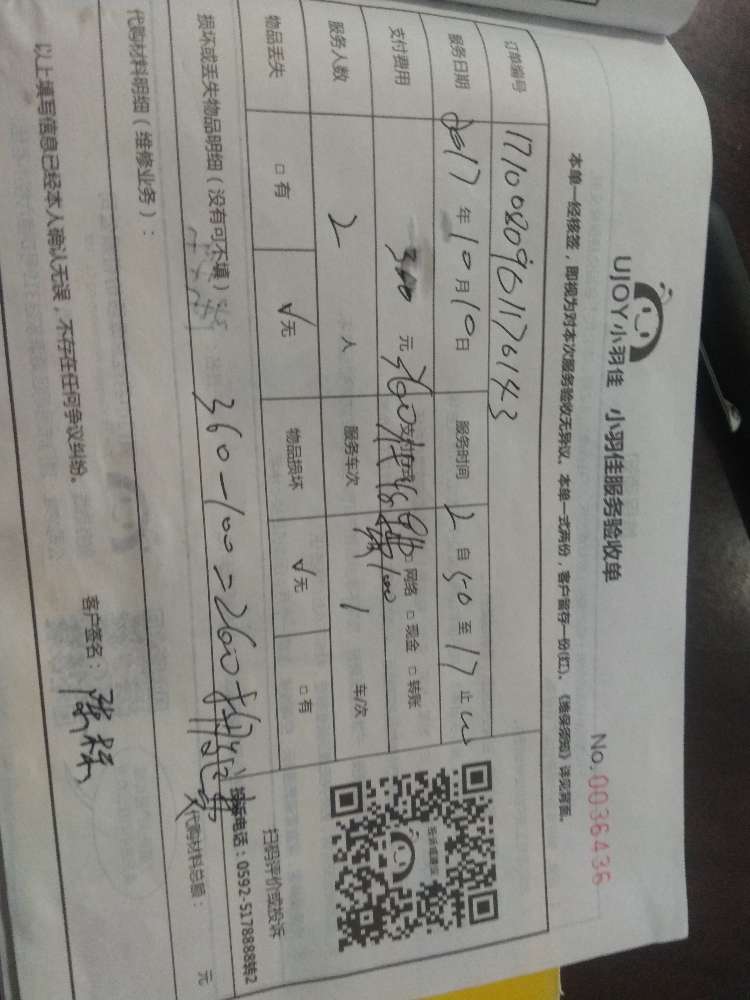 UJOY小羽佳 小羽佳服务验收单
No. 0036436
本单一经核签，即视为对本次服务验收无异议。本单一式两份，客户留存一份(红)。《维保须知》详见背面。
订单编号 1710080961170143
服务日期 2017 年 10 月 10 日 服务时间 2 自 50 至 17 止
支付费用 360 元 360 支付方式 网络 □ 现金 □ 转账
服务人数 2 人 服务车次 1 车/次
物品丢失 □ 有 √ 无 物品损坏 √ 无 □ 有
损坏或丢失物品明细（没有可不填）
360-100=260
代购材料明细（维修业务）：
代购材料总额： 元
投诉有惊喜
扫码评价或投诉
投诉电话：0592-5178888转2
以上填写信息已经本人确认无误，不存在任何争议纠纷。
客户签名：